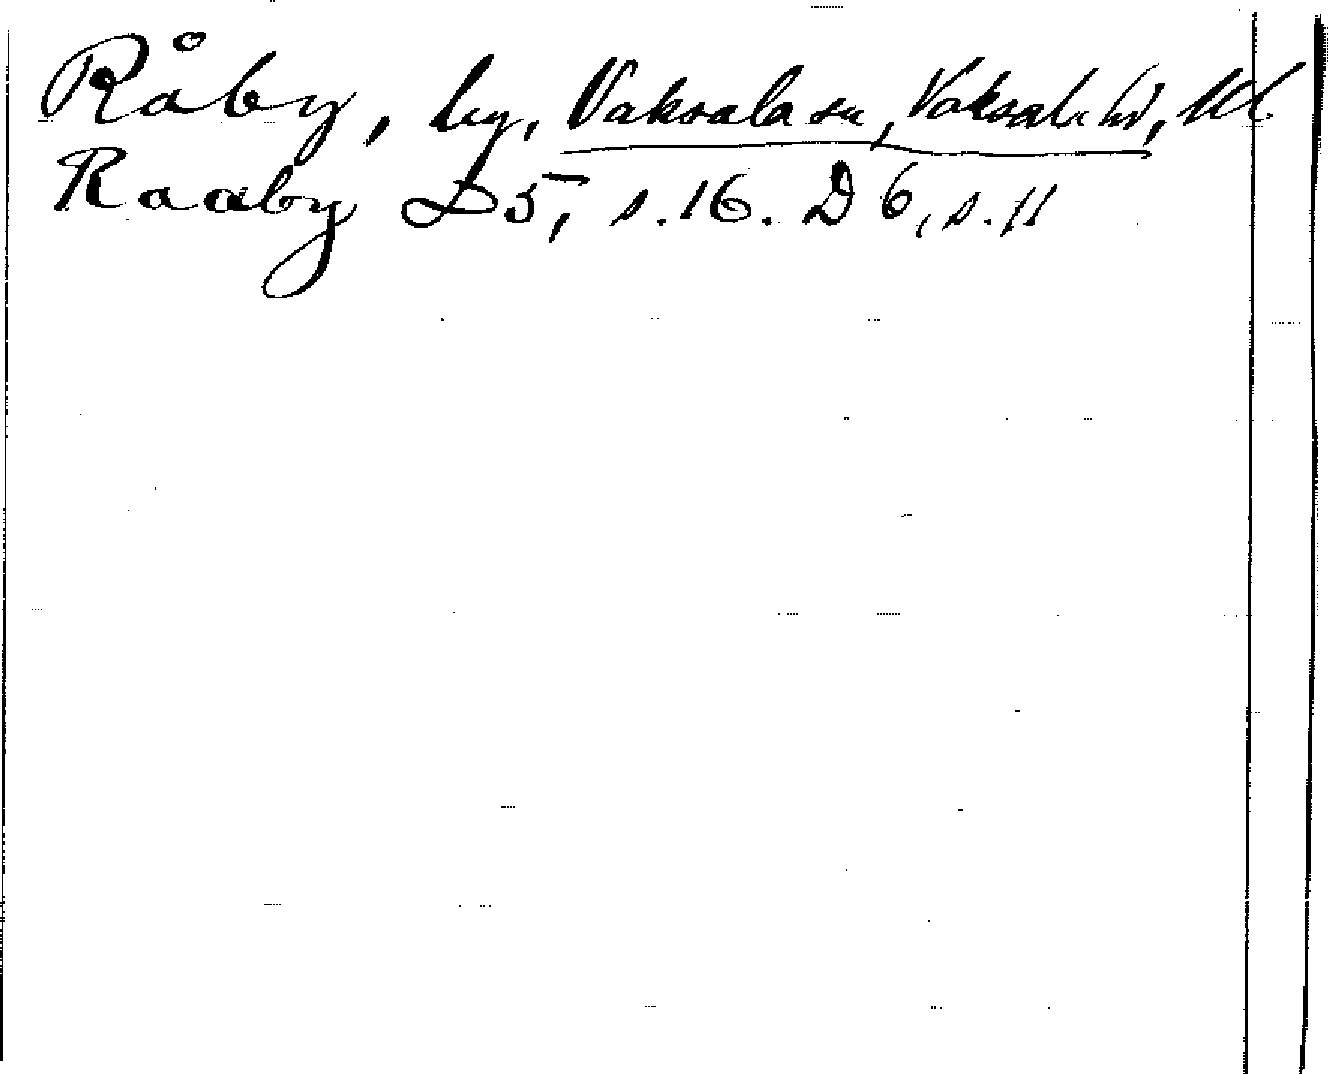 Råby, by, Vaksala sn, Vaksala hd, Ul.
Raaby D5, s. 16. D 6, s. 11